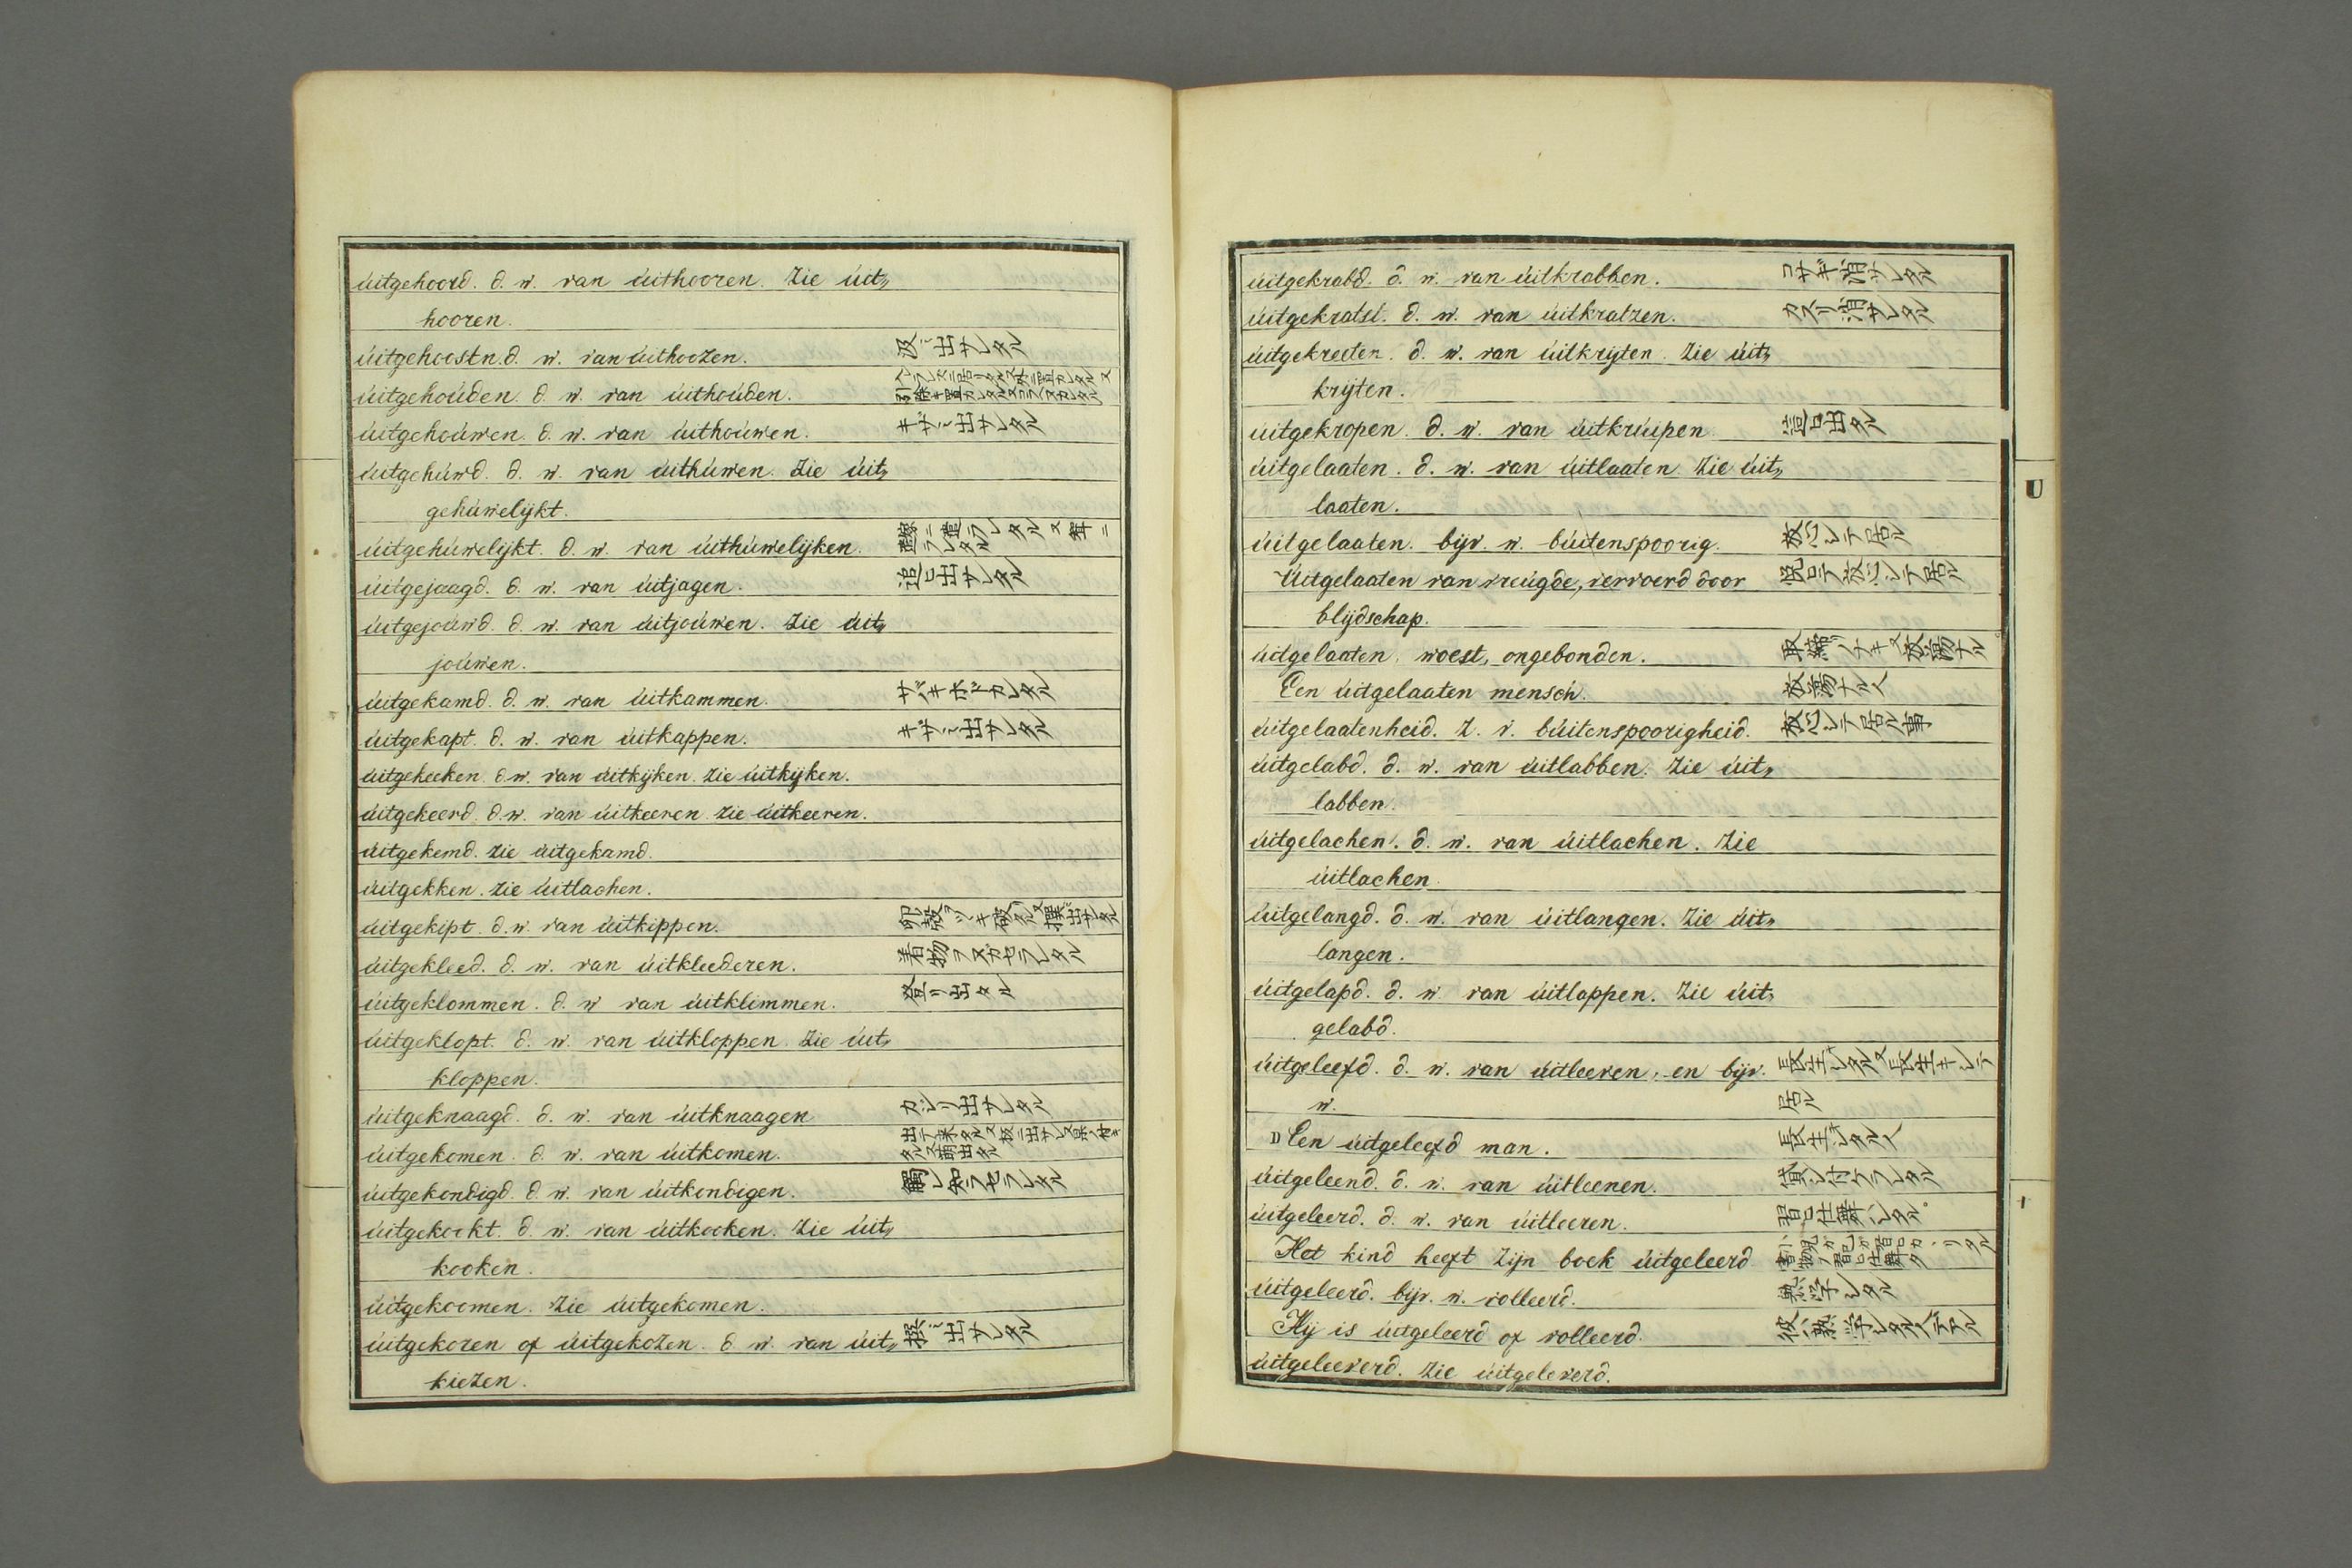 úitgehoord. d. w. van úithooren. Zie úit„
hooren.
úitgehoostn. d. w. van úithoozen. 汲ミ出サレタル
úitgehoúden. d. w. van úithoúden.
úitgehoúwen. d. w. van úithoúwen. キザミ出サレタル
úitgehúwd. d. w. van úithúwen. Zie úit„
gehúwelijkt.
úitgehúwelijkt. d. w. van úithúwelijken. 嫁ニ遣ラレタル又聟ニ遣ラレタル
úitgejaagd. d. w. van úitjagen. 追ヒ出サレタル
úitgejoúwd. d. w. van úitjoúwen. Zie úit„
joúwen.
úitgekamd. d. w. van úitkammen. サバキホドカレタル
úitgekapt. d. w. van úitkappen. キザミ出サレタル
úitgekeeken. d. w. van úitkijken. Zie úitkijken.
úitgekeerd. d. w. van úitkeeren. Zie úitkeeren.
úitgekemd. Zie úitgekamd.
úitgekken. Zie úitlachen.
úitgekipt. d. w. van úitkippen.
úitgekleed. d. w. van úitkleederen. 着物ヲヌガセラレタル
úitgeklommen. d. w van úitklimmen. 登リ出タル
úitgeklopt. d. w. van úitkloppen. Zie úit„
kloppen.
úitgeknaagd. d. w. van úitknaagen カジリ出サレタル
úitgekomen. d. w. van úitkomen.
úitgekondigd. d. w. van úitkondigen. 觸レ知ラセラレタル
úitgekookt. d. w. van úitkooken. Zie úit„
kooken.
úitgekoomen. Zie úitgekomen.
úitgekoren of úitgekozen. d. w. van úit„ 撰ミ出サレタル
kiezen.
úitgekrabd. d. w. van úitkrabben. コサギ消サレタル
úitgekratst. d. w. van úitkratzen. カスリ消サレタル
úitgekreeten. d. w. van úitkrijten. Zie úit„
krijten.
úitgekropen. d. w. van úitkrúipen. 這ヒ出タル
úitgelaaten. d. w. van úitlaaten. Zie úit„
laaten.
úitgelaaten. bijv. w. búitenspoorig. 放心シテ居ル
Uitgelaaten van vreúgde, vervoerd door 悦ヒテ放心シテ居ル
blijdschap.
úitgelaaten, woest, ongebonden. 取締リナキ又放蕩ナル
Een úitgelaaten mensch. 放蕩ナル人
úitgelaatenheid. Z. v. búitenspoorigheid. 放心シテ居ル事
úitgelabd. d. w. van úitlabben. Zie úit„
labben.
úitgelachen. d. w. van úitlachen. Zie
úitlachen.
úitgelangd. d. w. van úitlangen. Zie úit„
langen.
úitgelapd. d. w. van úitlappen. Zie úit„
gelabd.
úitgeleefd. d. w. van úitleeven, en bijv. 長生シタル又長生キシテ
w. 居ル
Een úitgeleefd man. 長生シタル人
úitgeleend. d. w. van úitleenen. 貸シ付ケラレタル
úitgeleerd. d. w. van úitleeren. 習ヒ仕舞ハレタル
Het kind heeft zijn boek úitgeleerd
úitgeleerd. bijv. w. volleerd. 熟学シタル
Hij is úitgeleerd of volleerd. 彼ハ熟学シタル人デアル
úitgeleeverd. Zie úitgeleverd.
U